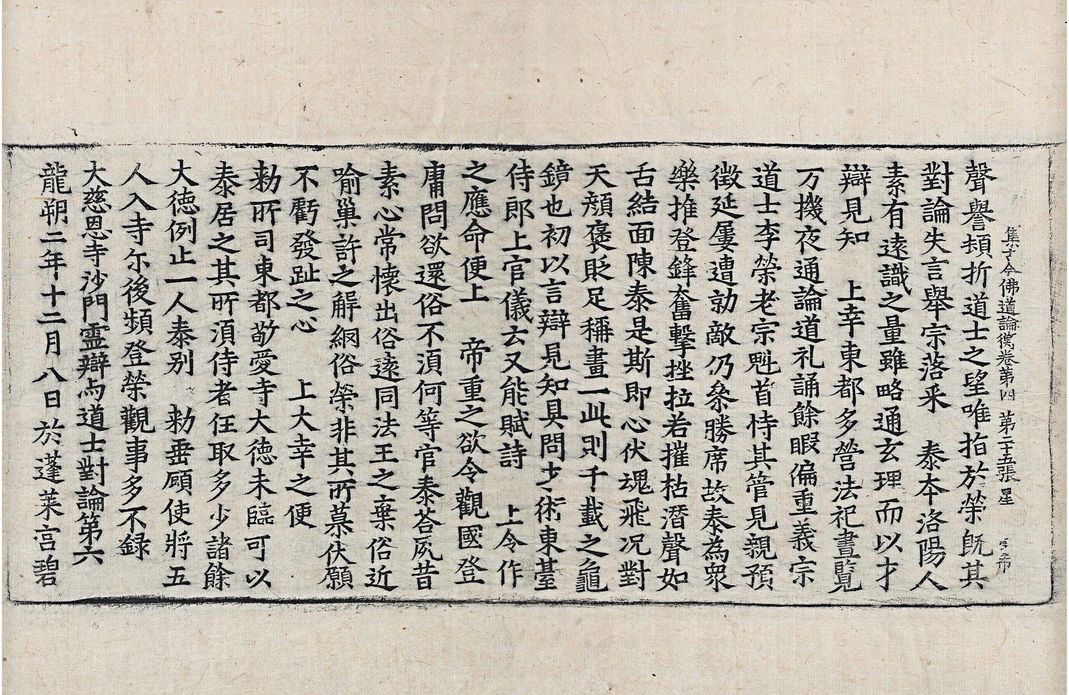 集古今佛道論衡卷第四 第二十五張 星
聲譽頓折道士之望唯指於榮既其
對論失言舉宗落釆 泰本洛陽人
素有遠識之量雖略通玄理而以才
辯見知 上幸東都多營法祀晝覽
万機夜通論道礼誦餘暇偏重義宗
道士李榮老宗魁首恃其管見親預
徴延屢遭勍敵仍叅勝席故泰為衆
樂推登鋒奮擊挫拉若摧枯潛聲如
舌結面陳泰是斯即心伏魂飛况對
天顔褒貶足稱畫一此則千載之龜
鏡也初以言辯見知具問才術東臺
侍郎上官儀云又能賦詩 上令作
之應命便上 帝重之欲令觀國登
庸問欲還俗不須何等官泰荅夙昔
素心常懷出俗遠同法王之棄俗近
喻巢許之解網俗榮非其所慕伏願
不虧發趾之心 上大幸之便
勑所司東都敬愛寺大德未臨可以
泰居之其所須侍者任取多少諸餘
大德例止一人泰别 勑垂顧使將五
人入寺尓後頻登榮觀事多不録
大慈恩寺沙門靈辯与道士對論第六
龍朔二年十二月八日於蓬萊宫碧